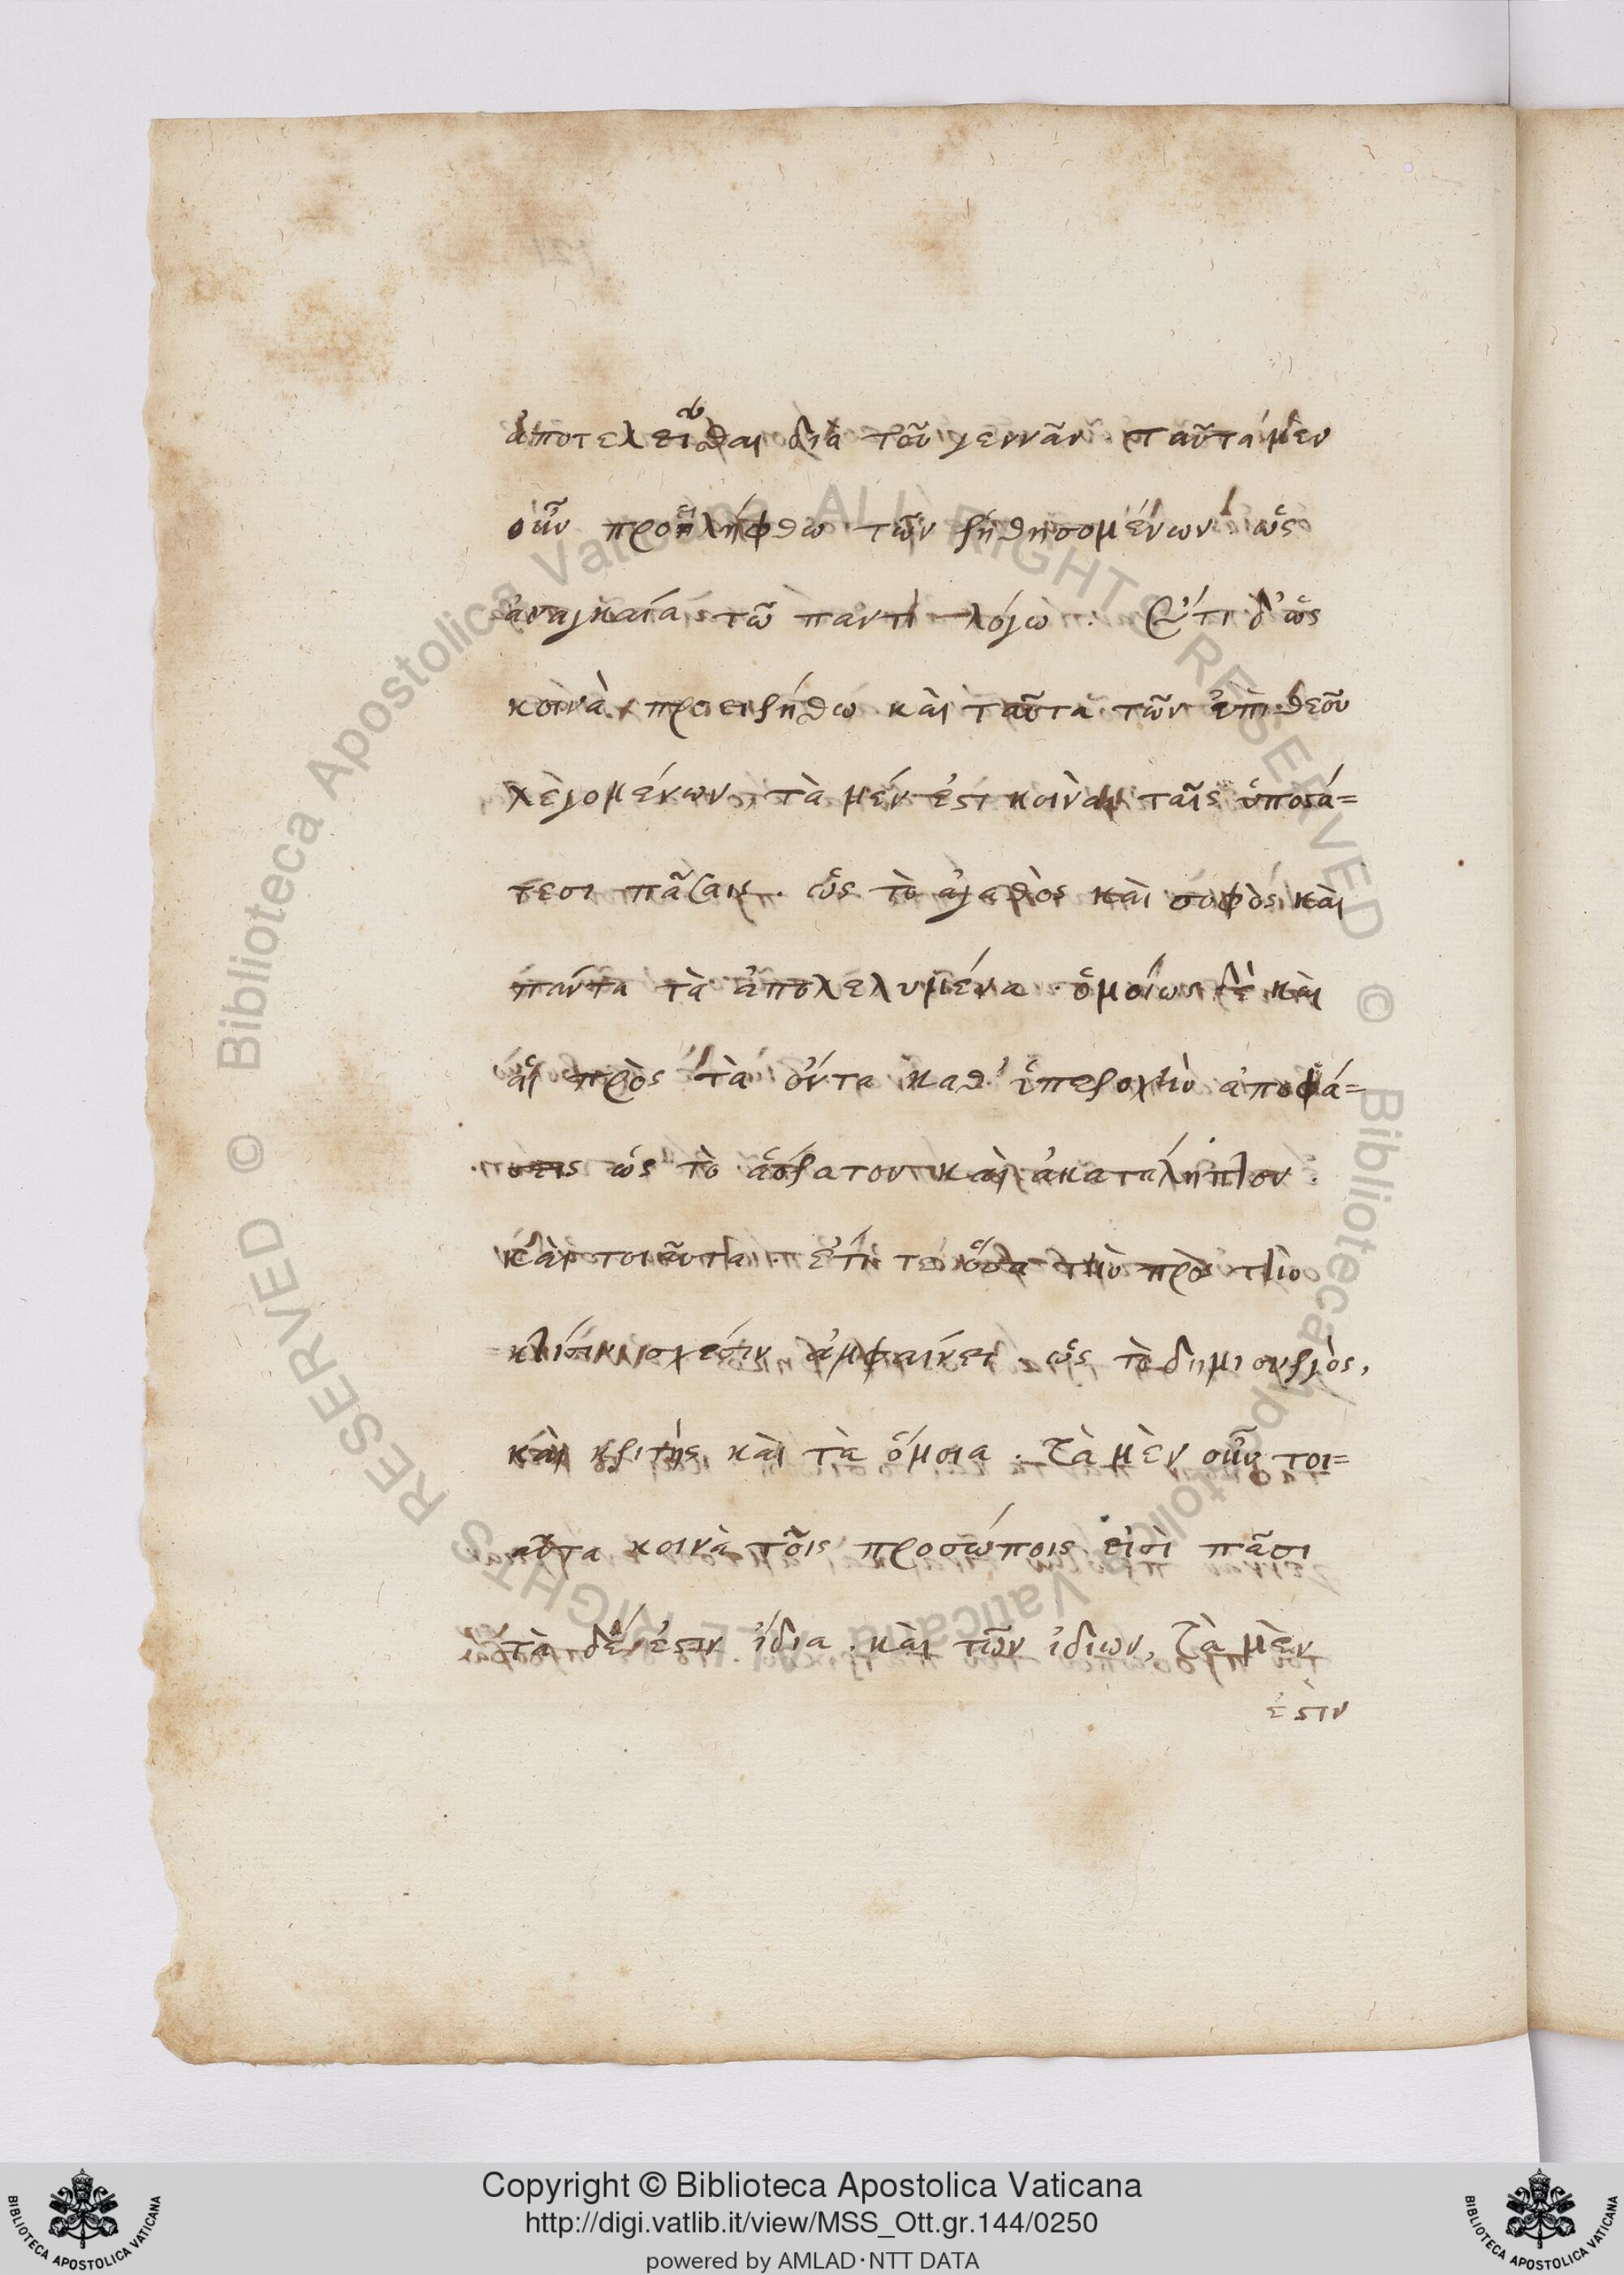 ἀποτελεῖσθαι διὰ τοῦ γεννᾶν. ταῦτα μὲν
οὖν προειλήφθω τῶν ῥηθησομένων ὡς
ἀναγκαῖα τῶ παντὶ λόγω. Ἔτι δ' ὡς
κοινὰ προειρήθω καὶ ταῦτα τῶν ἐπὶ θεοῦ
λεγομένων, τὰ μέν ἐστι κοινὰ ταῖς ὑποστά=
σεσι πᾶσαις. ὡς τὸ ἀγαθὸς καὶ σοφὸς καὶ
πάντα τὰ ἀπολελυμένα. ὁμοίως δὲ καὶ
αἱ πρὸς τὰ ὄντα καθ' ὑπεροχὴν ἀποφά=
σεις ὡς τὸ ἀόρατον καὶ ἀκατάληπτον.
καὶ τοιαῦτα. ἔτι τε ὅσα τὴν πρὸς τὴν
κτίσιν σχέσιν ἐμφαίνει. ὡς τὸ δημιουργὸς,
καὶ κριτὴς καὶ τὰ ὅμοια. Τὰ μὲν οὖν τοι=
αῦτα κοινὰ τοῖς προσώποις εἰσὶ πᾶσι
τὰ δέ ἐστιν ἴδια. καὶ τῶν ἰδίων, τὰ μὲν
ἐστιν
Copyright © Biblioteca Apostolica Vaticana
http://digi.vatlib.it/view/MSS_Ott.gr.144/0250
powered by AMLAD·NTT DATA
BIBLIOTECA APOSTOLICA VATICANA
BIBLIOTECA APOSTOLICA VATICANA
© Biblioteca Apostolica Vaticana ALL RIGHTS RESERVED
© Biblioteca Apostolica Vaticana ALL RIGHTS RESERVED